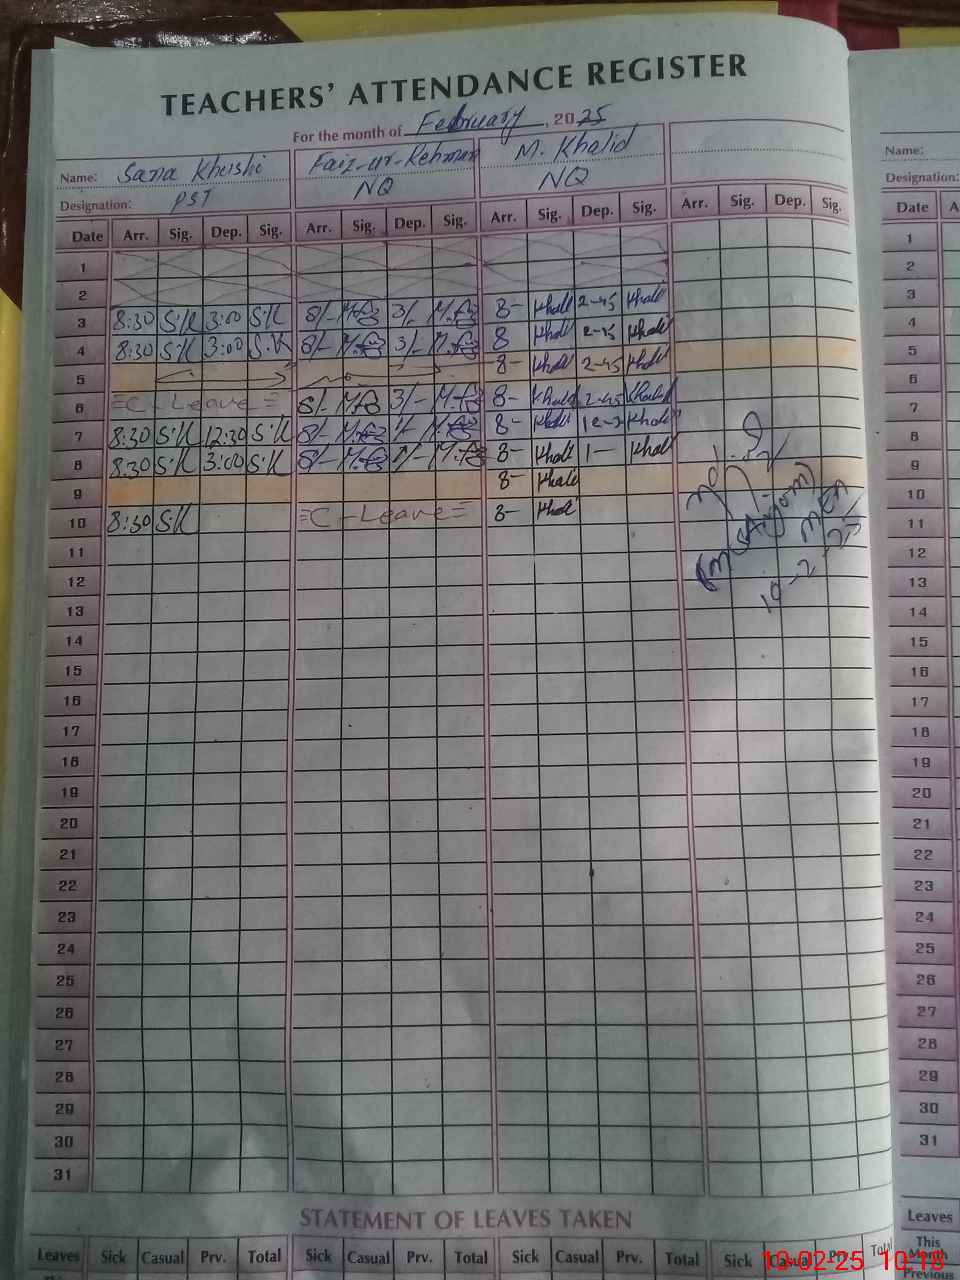 TEACHERS' ATTENDANCE REGISTER
For the month of February, 2025
Name: Sana Kheishi Faiz-ur-Rehman M. Khalid
Designation: PST NQ NQ
Date Arr. Sig. Dep. Sig. Arr. Sig. Dep. Sig. Arr. Sig. Dep. Sig. Arr. Sig. Dep. Sig.
1
2
3 8:30 S.K 3:00 S.K 8/- 3/- 8- Khali 2-45 Khali
4 8:30 S.K 3:00 S.K 8/- 3/- 8 Khali 2-45 Khali
5 8- Khali 2-45 Khali
6 =C-Leave= 8/- 3/- 8- Khalid 2-45 Khalid
7 8:30 S.K 12:30 S.K 8/- 8- Khali Khali
8 8:30 S.K 3:00 S.K 8/- 8- Khali 1- Khali
9 8- Khali
10 8:30 S.K =C-Leave= 8- Khali
11
12
13
14
15
16
17
18
19
20
21
22
23
24
25
26
27
28
29
30
31
MEA
10-2-25
STATEMENT OF LEAVES TAKEN
Leaves Sick Casual Prv. Total Sick Casual Prv. Total Sick Casual Prv. Total Sick Casual Prv. Total
Name:
Designation:
Date A
1
2
3
4
5
6
7
8
9
10
11
12
13
14
15
16
17
18
19
20
21
22
23
24
25
26
27
28
29
30
31
Leaves
This
Month
Previous
10-02-25 10:18